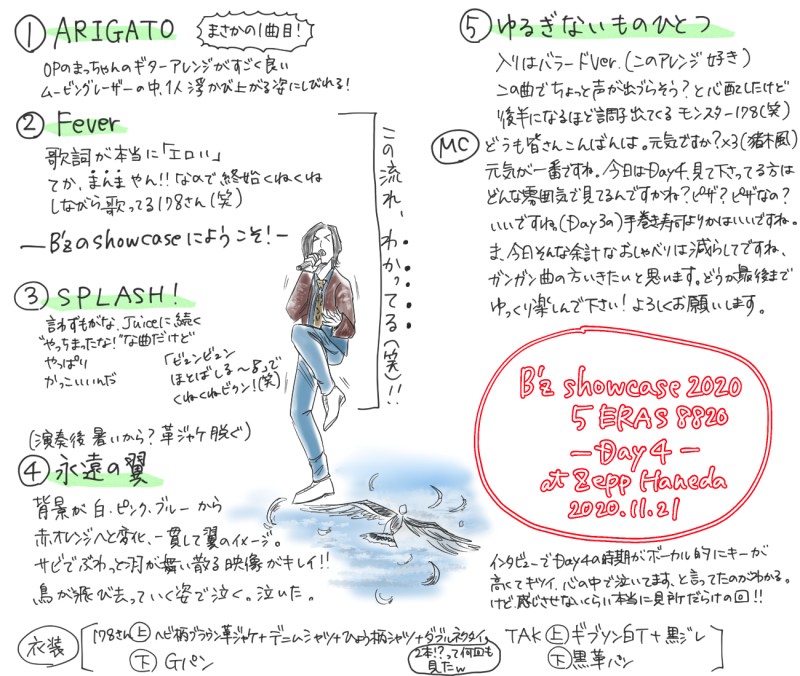 ① ARIGATO
まさかの1曲目！
OPのまっちゃんのギターアレンジがすごく良い
ムービングレーザーの中、1人浮かび上がる姿にしびれる！
② Fever
歌詞が本当に「エロい」
てか、まんまやん!! なので終始くねくね
しながら歌ってる178さん(笑)
— B'zのshowcaseにようこそ！—
③ SPLASH！
言わずもがな、Juiceに続く
"やっちまったな！"な曲だけど
やっぱり
かっこいいんだ
「ビュンビュン
ほとばしる〜8」で
くねくねビクン！(笑)
この流れ、わかってる(笑)!!
(演奏後 暑いから？革ジャケ脱ぐ)
④ 永遠の翼
背景が白・ピンク・ブルーから
赤・オレンジへと変化、一貫して翼のイメージ。
サビでぶわっと羽が舞い散る映像がキレイ!!
鳥が飛び去っていく姿で泣く。泣いた。
⑤ ゆるぎないものひとつ
入りはバラードVer.(このアレンジ好き)
この曲でちょっと声が出づらそう？と心配したけど
後半になるほど調子出てくる モンスター178(笑)
MC どうも皆さんこんばんは。元気ですか？×3(猪木風)
元気が一番ですね。今日はDay4、見て下さってる方は
どんな雰囲気で見てるんですかね？ピザ？ピザなの？
いいですね。(Day3の)手巻き寿司よりかはいいですね。
ま、今日そんな余計なおしゃべりは減らしてですね、
ガンガン曲の方いきたいと思います。どうか最後まで
ゆっくり楽しんで下さい！よろしくお願いします。
B'z showcase 2020
5 ERAS 8820
— Day4 —
at Zepp Haneda
2020.11.21
インタビューでDay4の時期がボーカル的にキーが
高くてキツイ、心の中で泣いてます、と言ってたのがわかる。
けど感じさせないくらい本当に見所だらけの回!!
衣装
178さん 上 ヘビ柄ブラウン革ジャケ+デニムシャツ+ひょう柄シャツ+ダブルネクタイ。
下 Gパン
2本!?って何回も
見たw
TAK 上 ギブソン白T+黒ジレ
下 黒革パン